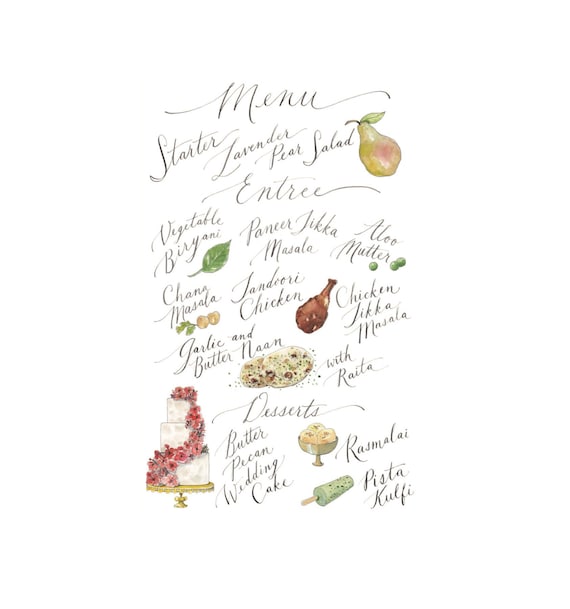 Menu
Starter
Lavender
Pear Salad
Entree
Vegetable
Biryani
Paneer Tikka
Masala
Aloo
Mutter
Chana
Masala
Tandoori
Chicken
Chicken
Tikka
Masala
Garlic and
Butter Naan
with
Raita
Desserts
Butter
Pecan
Wedding
Cake
Rasmalai
Pista
Kulfi